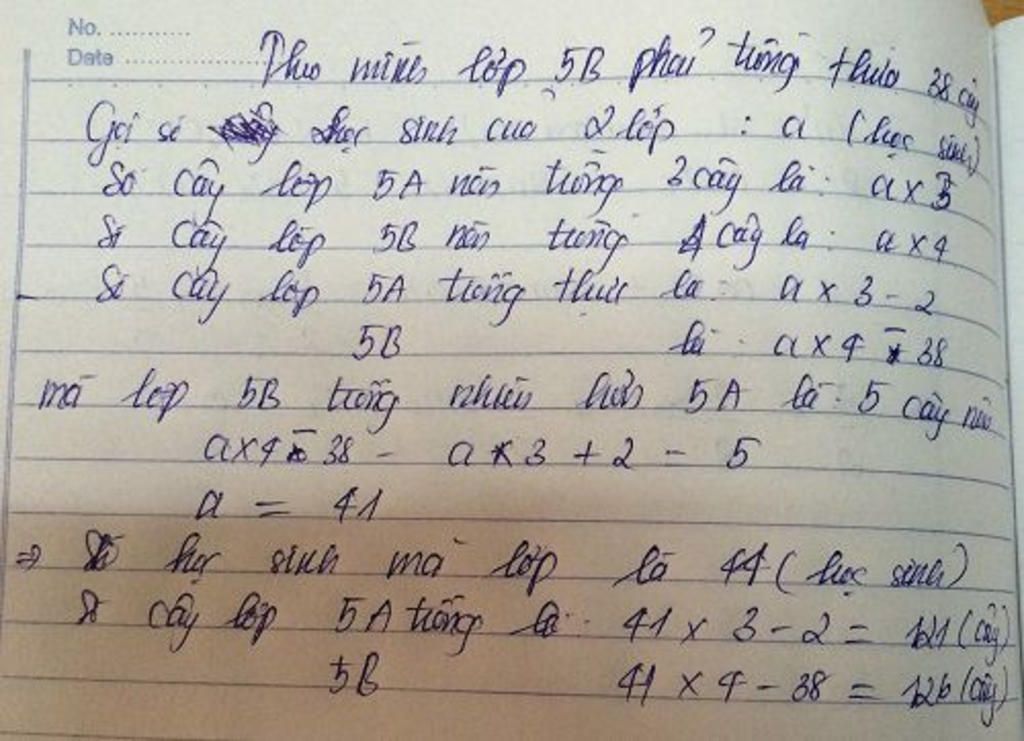 No. ............
Date ....................
Theo mình lớp 5B phải trồng thừa 38 cây
Gọi số học sinh của 2 lớp : a (học sinh)
Số cây lớp 5A nếu trồng 3 cây là : a x 3
Số cây lớp 5B nếu trồng 4 cây là : a x 4
Số cây lớp 5A trồng thực là : a x 3 - 2
5B là : a x 4 - 38
mà lớp 5B trồng nhiều hơn 5A là : 5 cây nên
a x 4 - 38 - a x 3 + 2 = 5
a = 41
⇒ Số học sinh mà lớp là 41 (học sinh)
Số cây lớp 5A trồng là : 41 x 3 - 2 = 121 (cây)
5B 41 x 4 - 38 = 126 (cây)